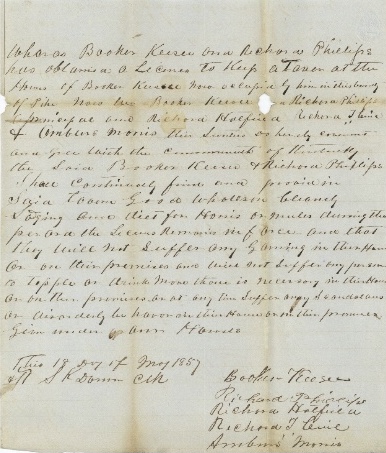 Whereas Booker Keesee and Richard Phillips
has obtained a Licence to Keep a Tavern at the
House of Booker Keesee Now occupied by him in the County
of Pike Now we Booker Keesee & Richard Phillips
principal and Richard Hatfield Richard T
& Ambers Morris their do hereby covenant
and Gree With the Commonwealth of Kentucky
the Said Booker Keesee & Richard Phillips
Shall Continualy find and provid in
Good Wholsom Cleanly
Loging and diet for Horses or mules during the
perod the Licence Remains in force and that
they Will Not Suffer any Gaming in the House
Or on their premises and Will not Suffer any person
to tipple or drink More than is necessary in the House
Or on the premises or at any time Suffer any Scandolous
or disorderly be havor in the House or on the premises
Given under Hands
This 18 Day of May 1857
Clk
Booker Keesee
Richard Phillips
Richard Hatfield
Richard T
Ambers Morris